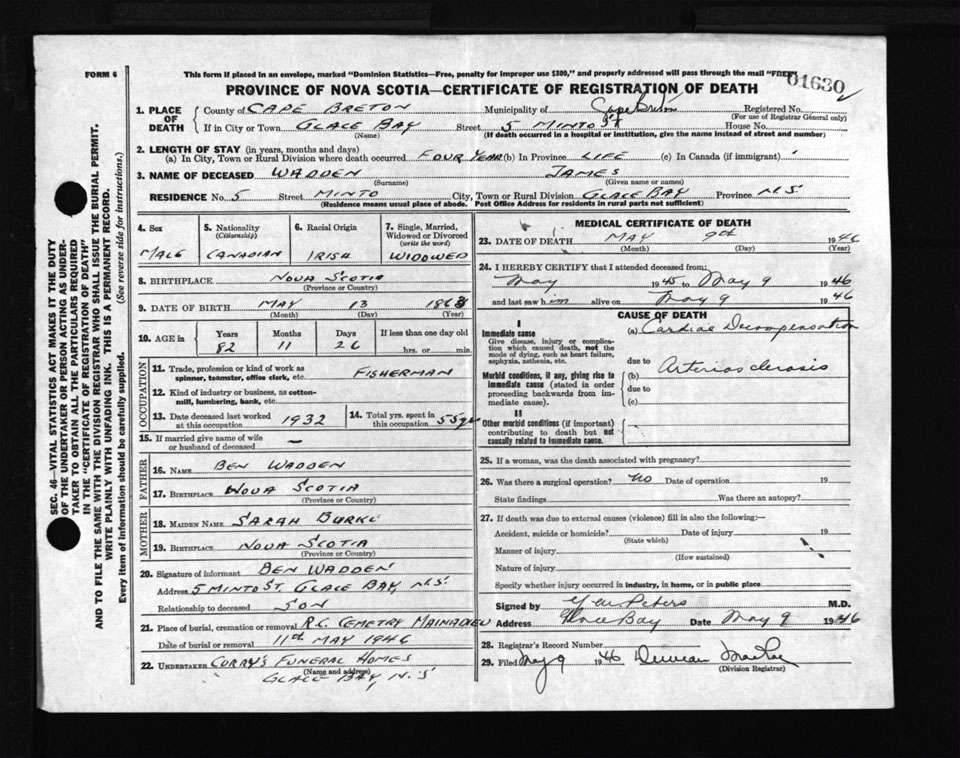 FORM 6
This form if placed in an envelope, marked "Dominion Statistics—Free, penalty for improper use $300," and properly addressed will pass through the mail "FREE"
01630
PROVINCE OF NOVA SCOTIA—CERTIFICATE OF REGISTRATION OF DEATH
1. PLACE OF DEATH County of CAPE BRETON Municipality of Cape Breton Registered No.
(For use of Registrar General only)
If in City or Town GLACE BAY Street 5 MINTO ST House No.
(Name) (If death occurred in a hospital or institution, give the name instead of street and number)
2. LENGTH OF STAY (in years, months and days)
(a) In City, Town or Rural Division where death occurred FOUR YEAR (b) In Province LIFE (c) In Canada (if immigrant)
3. NAME OF DECEASED WADDEN JAMES
(Surname) (Given name or names)
RESIDENCE No. 5 Street MINTO City, Town or Rural Division GLACE BAY Province N.S
(Residence means usual place of abode. Post Office Address for residents in rural parts not sufficient)
4. Sex 5. Nationality (Citizenship) 6. Racial Origin 7. Single, Married, Widowed or Divorced (write the word)
MALE CANADIAN IRISH WIDOWED
8. BIRTHPLACE NOVA SCOTIA
(Province or Country)
9. DATE OF BIRTH MAY 13 1863
(Month) (Day) (Year)
10. AGE Years Months Days If less than one day old
82 11 26 hrs. or min.
OCCUPATION
11. Trade, profession or kind of work as spinner, teamster, office clerk, etc. FISHERMAN
12. Kind of industry or business, as cotton-mill, lumbering, bank, etc.
13. Date deceased last worked at this occupation 1932 14. Total yrs. spent in this occupation 55 yrs
15. If married give name of wife or husband of deceased —
FATHER
16. NAME BEN WADDEN
17. BIRTHPLACE NOVA SCOTIA
(Province or Country)
MOTHER
18. MAIDEN NAME SARAH BURKE
19. BIRTHPLACE NOVA SCOTIA
(Province or Country)
20. Signature of informant BEN WADDEN
Address 5 MINTO ST. GLACE BAY, N.S
Relationship to deceased SON
21. Place of burial, cremation or removal R.C. CEMETRY MAINADIEU
Date of burial or removal 11th MAY 1946
22. UNDERTAKER CURRY'S FUNERAL HOMES
(Name and address)
GLACE BAY, N.S
MEDICAL CERTIFICATE OF DEATH
23. DATE OF DEATH MAY 9th 1946
(Month) (Day) (Year)
24. I HEREBY CERTIFY that I attended deceased from:
May 1945 to May 9 1946
and last saw him alive on May 9 1946
CAUSE OF DEATH
I
Immediate cause (a) Cardiac Decompensation
Give disease, injury or complication which caused death, not the mode of dying, such as heart failure, asphyxia, asthenia, etc.
due to
Morbid conditions, if any, giving rise to immediate cause (stated in order proceeding backwards from immediate cause). (b) Arteriosclerosis
due to
(c)
II
Other morbid conditions (if important) contributing to death but not causally related to immediate cause.
25. If a woman, was the death associated with pregnancy?
26. Was there a surgical operation? no Date of operation 19
State findings Was there an autopsy?
27. If death was due to external causes (violence) fill in also the following:—
Accident, suicide or homicide? Date of injury 19
(State which)
Manner of injury
(How sustained)
Nature of injury
Specify whether injury occurred in industry, in home, or in public place
Signed by Peters M.D.
Address Glace Bay Date May 9 1946
28. Registrar's Record Number
29. Filed May 9 1946 Duncan
(Division Registrar)
SEC. 46—VITAL STATISTICS ACT MAKES IT THE DUTY
OF THE UNDERTAKER OR PERSON ACTING AS UNDER-
TAKER TO OBTAIN ALL THE PARTICULARS REQUIRED
IN THE "CERTIFICATE OF REGISTRATION OF DEATH"
AND TO FILE THE SAME WITH THE DIVISION REGISTRAR WHO SHALL ISSUE THE BURIAL PERMIT.
WRITE PLAINLY WITH UNFADING INK. THIS IS A PERMANENT RECORD.
Every item of information should be carefully supplied. (See reverse side for instructions.)